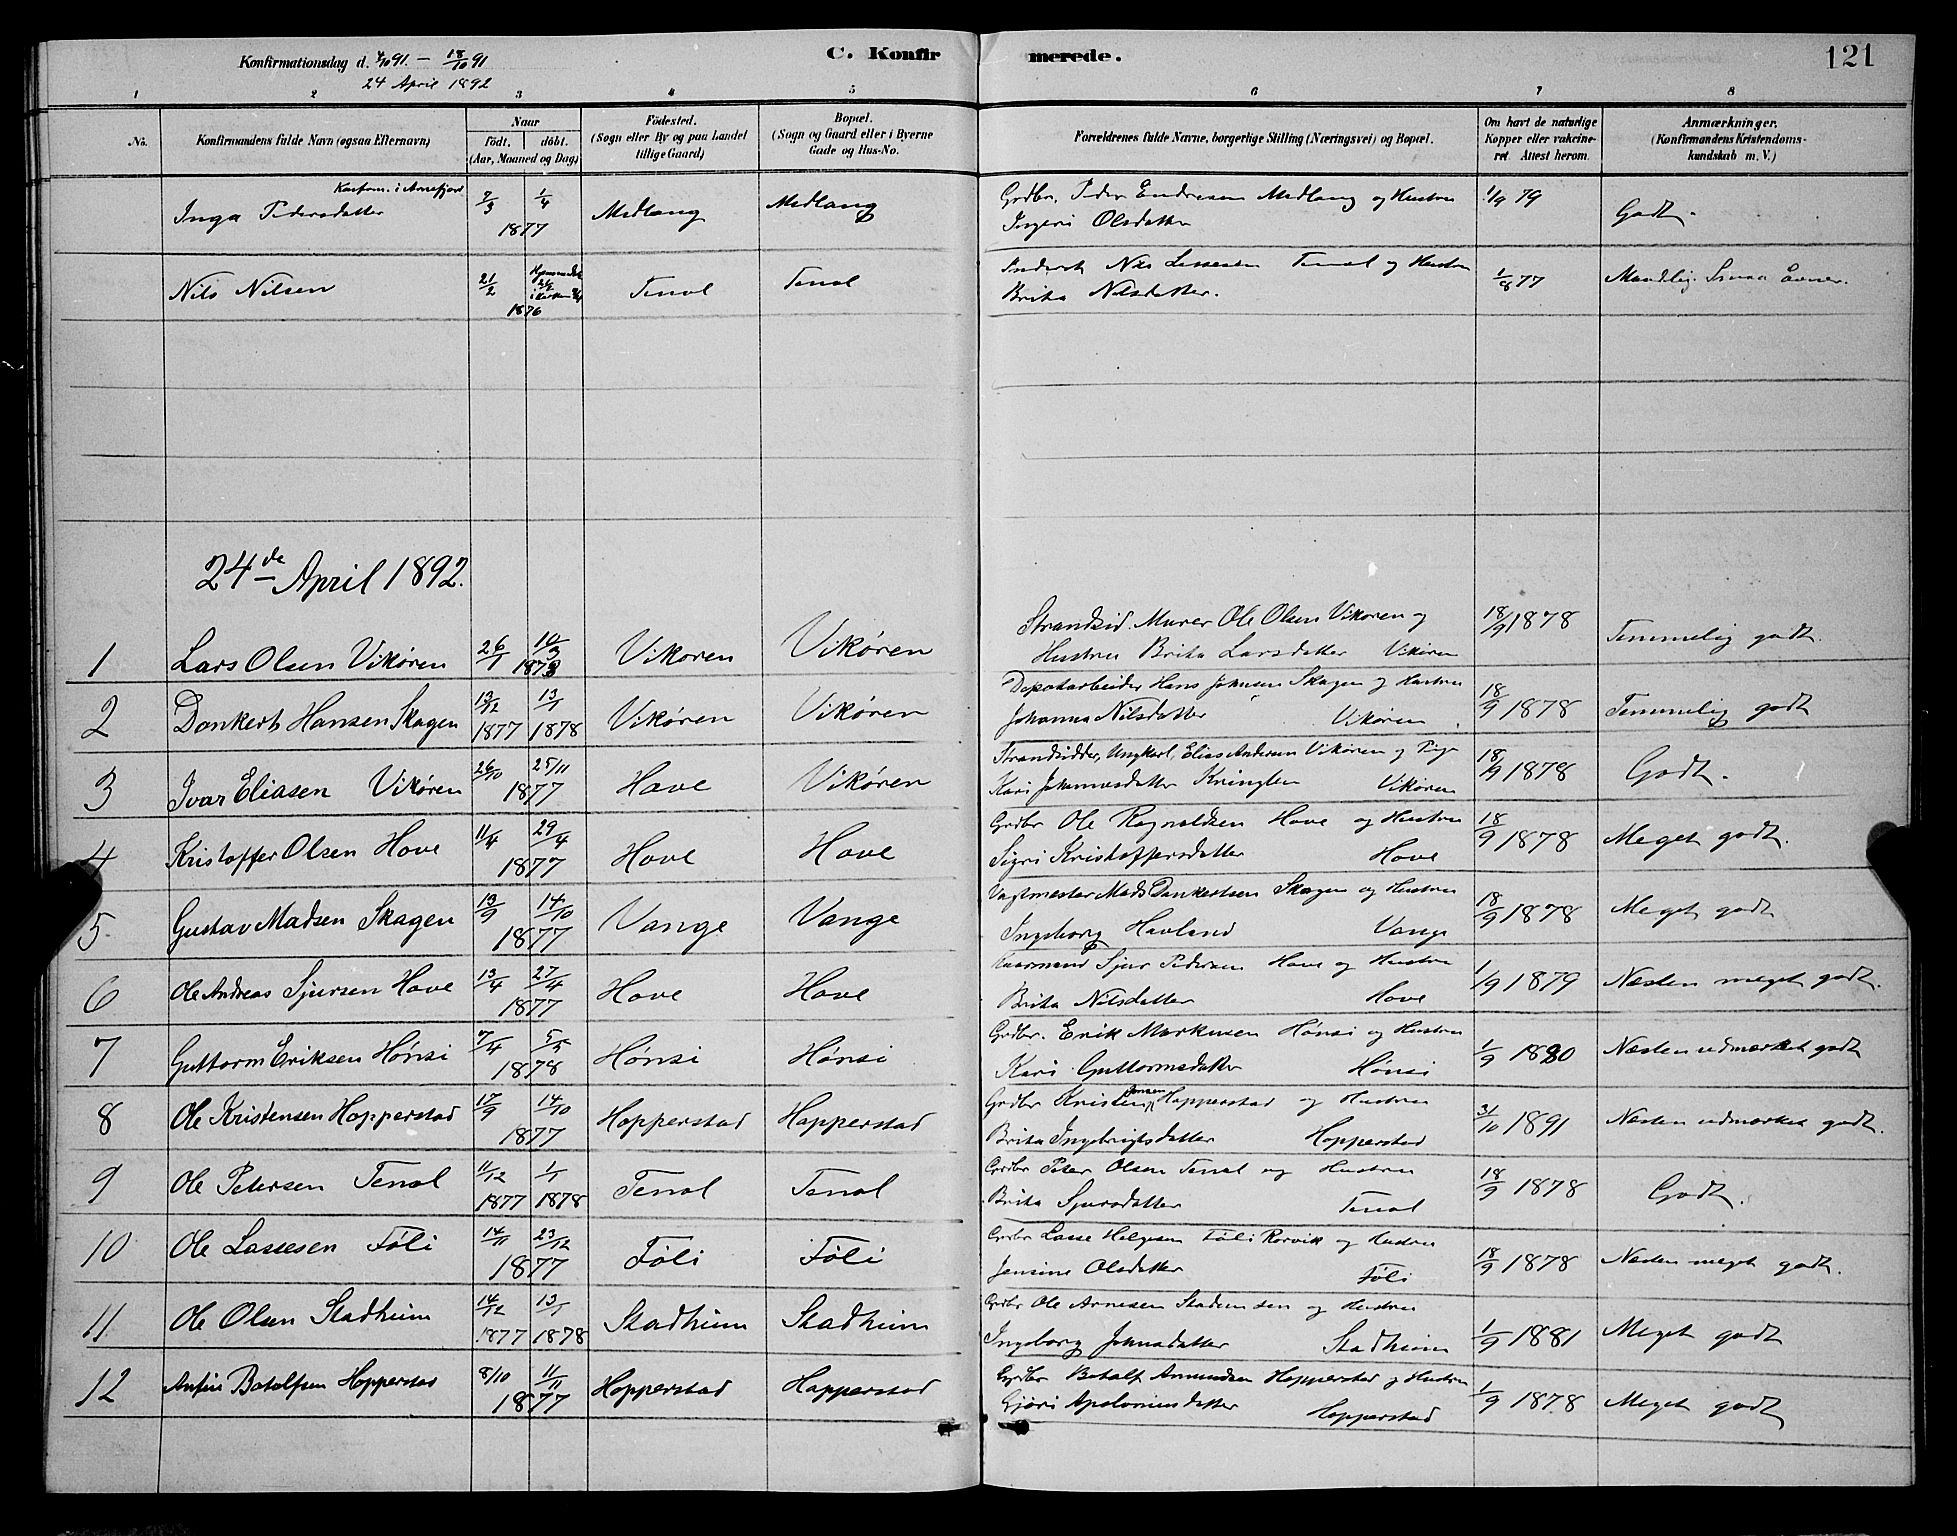 Konfirmationsdag d. 4/10 91. — 18/10 91
24 April 1892
C. Konfirmerede.
121
1 2 3 4 5 6 7 8
No.
Konfirmandens fulde Navn (ogsaa Efternavn)
Naar
födt. döbt.
(Aar, Maaned og Dag)
Födested.
(Sogn eller By og paa Landet
tillige Gaard)
Bopæl.
(Sogn og Gaard eller i Byerne
Gade og Hus-No.
Forældrenes fulde Navne, borgerlige Stilling (Næringsvei) og Bopæl.
Om havt de naturlige
Kopper eller vakcine-
ret. Attest herom.
Anmærkninger.
(Konfirmandens Kristendoms-
kundskab m. V.)
i Arnefjord
Inga Pedersdatter 1/4 1877 Medlang Medlang Grdbr. Peder Endresen Medlang og Hustru 1/9 79 Godt.
Ingeri Olsdatter
Nils Nilsen 21/2 1876 Tenol Tenol Nils Lassesen Tenol og Hustru 1/8 77 Maadelig. Smaa Evner.
Brita Nilsdatter.
24de April 1892.
1 Lars Olsen Vikøren 26/1 Vikøren Vikøren Strandsid. Murer Ole Olsen Vikøren og 18/9 1878 Temmelig godt.
Hustru Brita Larsdatter Vikøren
2 Dankert Hansen Skagen 13/12 1877 13/1 1878 Vikøren Vikøren Depotarbeider Hans Johnsen Skagen og Hustru 18/9 1878 Temmelig godt
Johanna Nilsdatter Vikøren
3 Ivar Eliasen Vikøren 26/10 25/11 1877 Hove Vikøren Strandsidder, Ungkarl, Elias Andersen Vikøren og Pige 18/9 1878 Godt.
Kari Johannesdatter Vikøren
4 Kristoffer Olsen Hove 11/4 29/4 1877 Hove Hove Grdbr Ole Ragnvaldsen Hove og Hustru 18/9 1878 Meget godt.
Sigri Kristoffersdatter Hove
5. Gustav Madsen Skagen 13/9 14/10 1877 Vange Vange Vagtmester Mads Dankertsen Skagen og Hustru 18/9 1878 Meget godt
Ingeborg Havland Vange
6 Ole Andreas Sjursen Hove 13/4 27/4 1877 Hove Hove Sjur Pedersen Hove og Hustru 1/9 1879 Næsten meget godt.
Brita Nilsdatter Hove
7 Guttorm Eriksen Hønsi 7/4 5/5 1878 Hønsi Hønsi Grdbr. Erik Markusen Hønsi og Hustru 1/9 1880 Næsten udmærket godt
Kari Guttormsdatter Hønsi
8 Ole Kristensen Hopperstad 17/9 14/10 1877 Hopperstad Hopperstad Grdbr Kristen Jensen Hopperstad og Hustru 31/10 1891 Næsten udmærket godt.
Brita Ingebrigtsdatter Hopperstad
9 Ole Petersen Tenol 11/12 1877 1/1 1878 Tenol Tenol Grdbr Peter Olsen Tenol og Hustru 18/9 1878 Godt.
Brita Sjursdatter Tenol
10 Ole Lassesen Føli 14/11 23/12 1877 Føli Føli Grdbr Lasse Helgesen Føli Rørvik og Hustru 18/9 1878 Næsten meget godt.
Jensine Olsdatter Føli
11 Ole Olsen Stadheim 14/12 1877 13/1 1878 Stadheim Stadheim Grdbr Ole Arnesen og Hustru 1/9 1881 Meget godt
Ingeborg Johnsdatter Stadheim
12 Anfin Botolfsen Hopperstad 8/10 11/11 1877 Hopperstad Hopperstad Grdbr Botolf Amundsen Hopperstad og Hustru 1/9 1878 Meget godt
Gjøri Apoloniusdatter Hopperstad